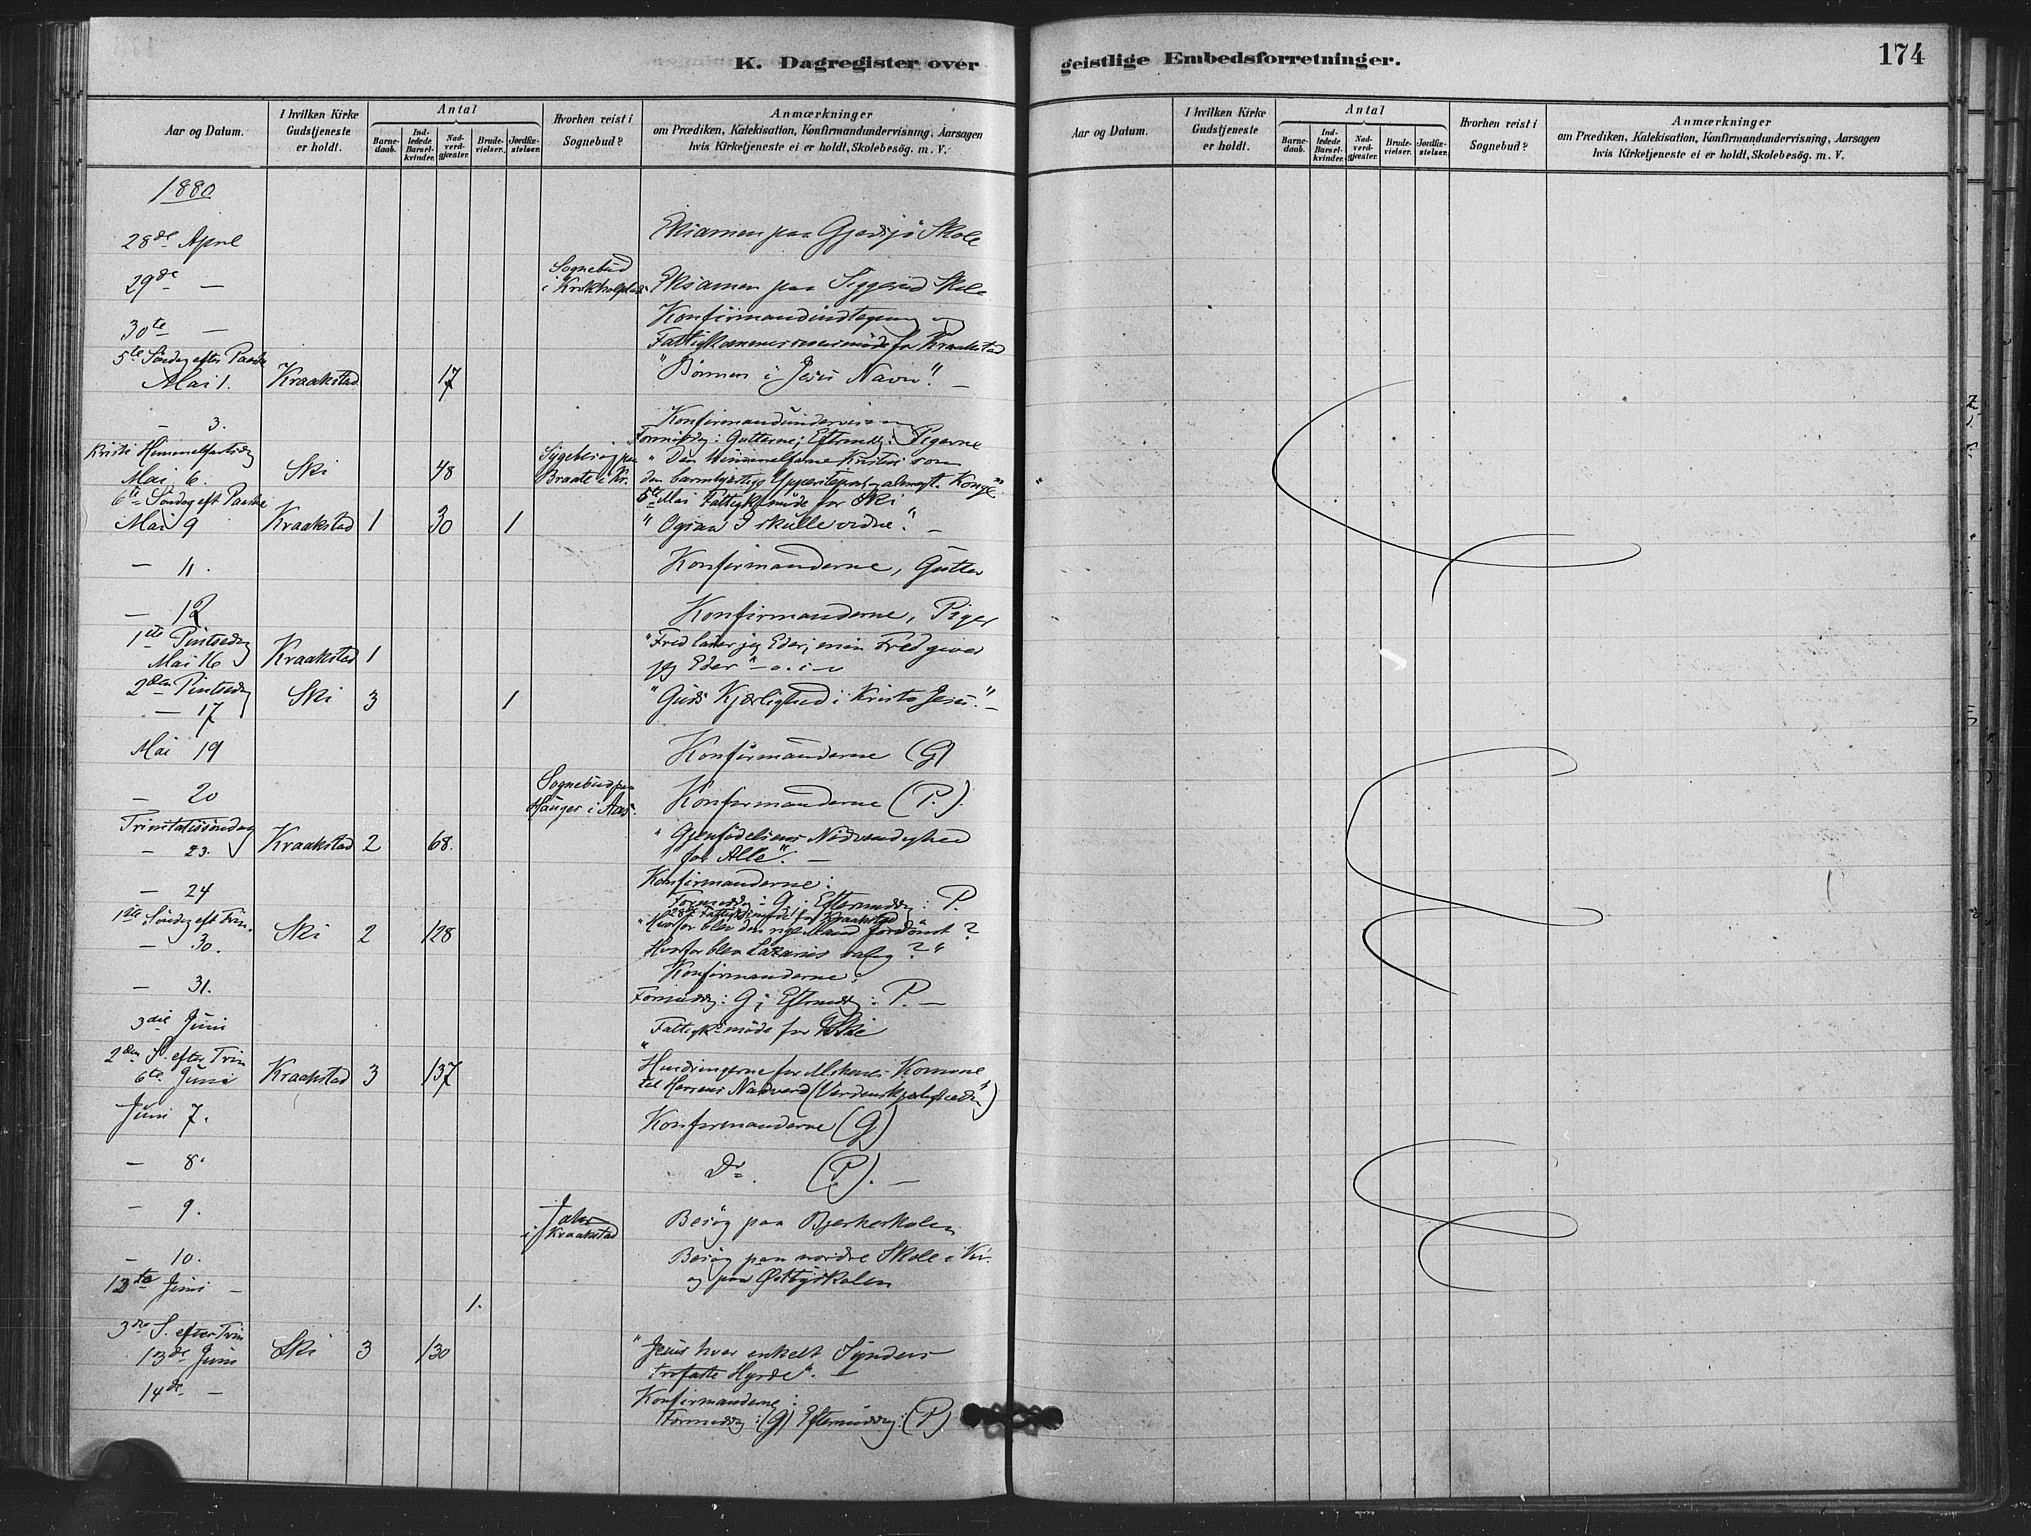 K. Dagregister over geistlige Embedsforretninger.
174
Aar og Datum.
I hvilken Kirke Gudstjeneste er holdt.
Antal
Barnedaab.
Indledede Barselkvinder.
Nadverdgjæster.
Brudevielser.
Jordfæstelser.
Hvorhen reist i Sognebud?
Anmærkninger
om Prædiken, Katekisation, Konfirmandundervisning, Aarsagen
hvis Kirketjeneste ei er holdt, Skolebesøg. m. V.
Aar og Datum.
I hvilken Kirke Gudstjeneste er holdt.
Antal
Barnedaab.
Indledede Barselkvinder.
Nadverdgjæster.
Brudevielser.
Jordfæstelser.
Hvorhen reist i Sognebud?
Anmærkninger
om Prædiken, Katekisation, Konfirmandundervisning, Aarsagen
hvis Kirketjeneste ei er holdt, Skolebesøg. m. V.
1880
28de April Eksamen paa Gjedsjø Skole
29de — Sognebud i Krokholplads Eksamen paa Siggerud Skole
30te — Konfirmandindtegning og
Fattigkommissionsmøde for Kraakstad
5te Søndag efter Paaske
Mai 1. Kraakstad 17 "Bønnen i Jesu Navn". —
— 3. Konfirmandundervisn
Formiddg: Gutterne; Eftermdg: Pigerne
Kristi Himmelfartsdag
Mai 6. Ski 48 Sygebesøg paa Braate i Kr. "Den himmelfarne Kristus som
den barmhjertige Ypperstepræst og almægt. Konge"
6te Søndag eft Paaske 5te Mai Fattigk.møde for Ski
Mai 9 Kraakstad 1 30 1 "Ogsaa I skulle vidne". —
— 11. Konfirmanderne, Gutter
— 12 Konfirmanderne, Piger
1ste Pintsedag
Mai 16 Kraakstad 1 "Fred lader jeg Eder; min Fred giver
jeg Eder" — o. s. v
2den Pintsedag
— 17 Ski 3 1 "Guds Kjærlighed i Kristo Jesu". —
Mai 19 Konfirmanderne (G)
— 20 Sognebud paa Hauger i Aas. Konfirmanderne (P.).
Trinitatissøndag
— 23. Kraakstad 2 68. "Gjenfødelsens Nødvendighed
for Alle". —
— 24 Konfirmanderne:
Formiddg: G; Eftermddg: P.
28de Fattigk.møde for Kraakstad
1ste Søndag eft Trin.
— 30. Ski 2 128 "Hvorfor blev den rige Mand fordømt?
Hvorfor blev Lazarus salig?"
— 31. Konfirmanderne:
Formiddg: G; Eftermddg: P. —
3die Juni Fattigk.møde for Ski
2den S. efter Trin
6te Juni Kraakstad 3 137 "Hindringerne for Menes Komme
til Herrens Nadverd (Verdenskjærligheden")
Juni 7. Konfirmanderne (G)
— 8. Do (P). —
— 9. i Kraakstad Besøg paa Bjerkeskolen
— 10. Besøg paa nordre Skole i Kr.
og paa Østbyskolen
12te Juni — 1.
3die S. efter Trin
13de Juni Ski 3 130 "Jesus hver enkelt Synders
trofaste Hyrde". —
14de — Konfirmanderne:
Formiddg: (G) Eftermiddg: (P)